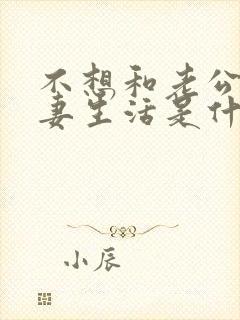 不想和老公
妻生活是什
小辰